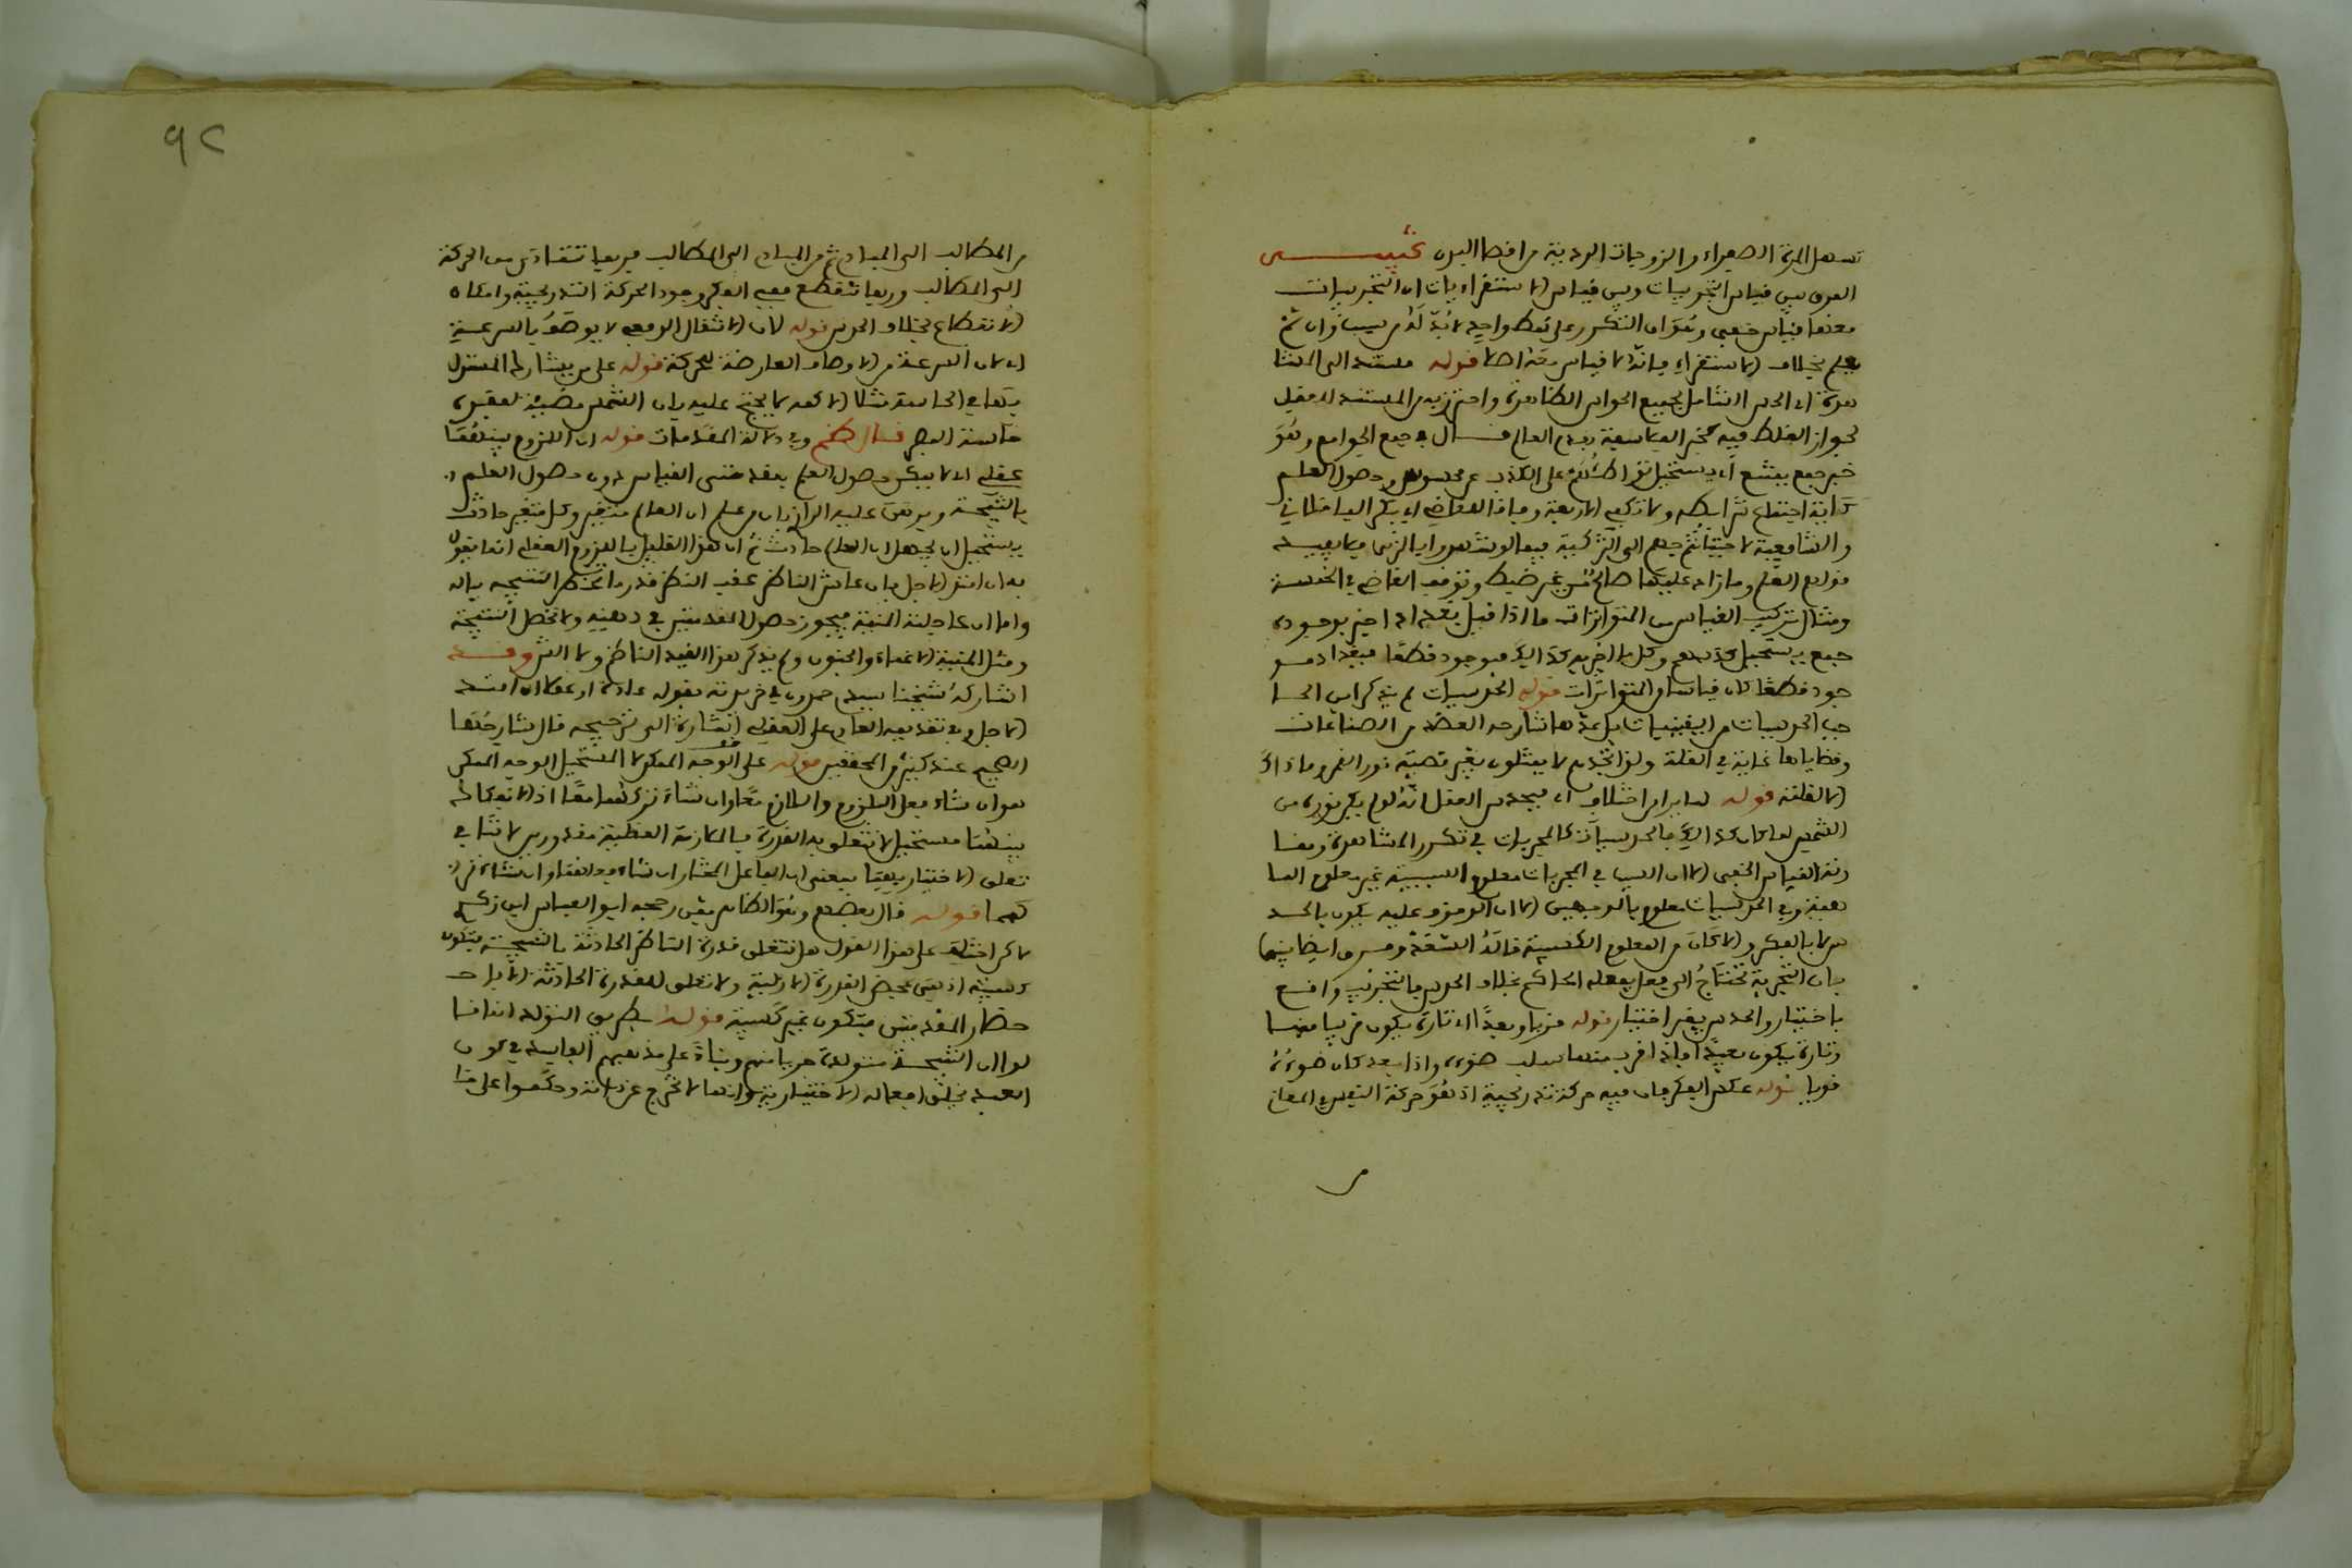 تسهل المرة الصفراء والزوجات الردية من اقصا البدن تنبيـــه
الفرق بين قياس التجربيات وبين قياس الاستقراءيات ان التجربيات
معها قياس خفي وهو ان التكرر على نمط واحد لا بد له من سبب وان لم
يعلم بخلاف الاستقراء فانه لا قياس معه اصلا قوله مستند الى المشا
هدة اي الحس الشامل لجميع الحواس الظاهرة واحترز به من المستند للعقل
لجواز الغلط فيه كخبر الفلاسفة بقدم العالم قـــال في جمع الجوامع وهو
خبر جمع يمتنع اي يستحيل تواطئهم على الكذب عن محسوس وحصول العلم
اية اجتماع شرايطه ولا تكفي الاربعة وفاقا للقاضي ابي بكر الباقلاني
والشافعية لاحتياجهم الى التزكية فيما لو شهدوا بالزنى فلا يفيد
قولهم العلم وما زاد عليها صالح من غير ضبط وتوقف القاضي في الخمسة
ومثال تركيب القياس من المتواترات ما اذا قيل بغداد اخبر بوجوده
جمع يستحيل كذبهم وكل ما اخبر به كذلك فموجود قطعا فبغداد مو
جود قطعا كان قياسا من المتواترات قوله الحدسيات لم يذكر ابن الحا
جب الحدسيات من اليقينيات بل عدها شارحه العضد من الصناعات
وقضاياها غاية في القلة ولذا تجدهم لا يمثلون بغير قضية نور القمر وما ذاك
الا لقلته قوله لما يرا من اختلاف اي فيحدس العقل انه لو لم يكن نوره من
الشمس لما كان كذلك فالحدسيات كالمجربات في تكرر المشاهدة ومقا
رنة القياس الخفي الا ان السبب في المجربات معلوم السببية غير معلوم الما
هية وفي الحدسيات معلوم بالوجهين الا ان الوقوف عليه يكون بالحد
س لا بالفكر والا كان من العلوم الكسبية قاله السعد وفرق ايضا بينهما
بان التجربة تحتاج الى فعل يفعله الحاكم بخلاف الحدس فالتجريب واقع
باختيار والحدس بغير اختيار قوله قربا وبعدا اي تارة يكون قريبا منها
وتارة يكون بعيدا فاذا قرب منها سلب ضوءه واذا بعد كان ضوءه
قويا قوله عكس الفكر فان فيه حركة تدريجية اذ هو حركة النفس في المعاني
من
٩٢
من المطالب الى المبادي ثم من المبادي الى المطالب فربما تتمادى من الحركة
الى المطالب وربما تنقطع ففي الفكر وجود الحركة التدريجية وامكان
الانقطاع بخلاف الحدس قوله لان الانتقال الدفعي لا يوصف بالسرعة
اي لان السرعة من الاوصاف العارضة للحركة قوله على من يشاركه المشترك
بينهما في الحاسة مثلا الاعمى لا يحتج عليه بان الشمس مضيئة لفقده
حاسة البصر قـــال الناظم وفي دلالة المقدمات قوله ان اللزوم بينهما
عقلي اي لا يمكن حصول العلم بمقدمتي القياس دون حصول العلم
بالنتيجة وبرهن عليه الرازي بان من علم ان العالم متغير وكل متغير حادث
يستحيل ان يجهل ان العالم حادث ثم ان هذا القايل باللزوم العقلي انما يقول
به ان امتد الاجل بان عاش الناظر عقب النظر قدر ما تخطر النتيجة بباله
واما ان عاجلته المنية فيجوز حصول المقدمتين في ذهنه ولا تحصل النتيجة
ومثل المنية الاغماء والجنون ولم يذكر هذا القيد الناظم ولا الش وقـــد
اشار له شيخنا سيدي حمدون في خريدته بقوله عادة او عقلا ان امتد
الاجل وفي تقديمه العادي على العقلي اشارة الى ترجيحه قال شارحها
الصحيح عند كثير من المحققين قوله على الوجه الممكن لا المستحيل الوجه الممكن
هو ان شاء فعل الملزوم واللازم معا وان شاء تركهما معا اذ الانفكاك
بينهما مستحيل لا تتعلق به القدرة فالملازمة العقلية مقدورين لا تنافي
تعلق الاختيار بهما بمعنى ان الفاعل المختار ان شاء فعلهما وان شاء تر
كهما قولـــه قال بعضهم وهو الظاهر يعني رجحه ابو العباس ابن زكري
لاكن اختلف على هذا القول هل تتعلق قدرة الناظر الحادثة بالنتيجة فتكون
كسبية اذ هي بمحض القدرة الازلية ولا تعلق للقدرة الحادثة الا باحـ
ضار المقدمتين فتكون غير كسبية قوله بطريق التولد انما قا
لوا ان النتيجة متولدة جريا منهم وبناء على مذهبهم الفاسد في كون
العبد يخلق افعاله الاختيارية وانها لا تخرج عن ذاته وحكموا على ما